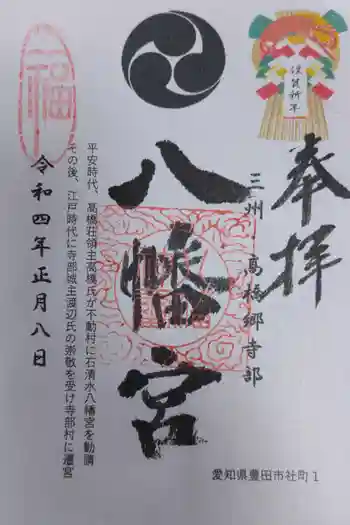 奉拝
謹賀新年
三州 高橋郷寺部
八幡宮
福
平安時代、高橋荘領主高橋氏が不動村に石清水八幡宮を勧請
その後、江戸時代に寺部城主渡辺氏の崇敬を受け寺部村に遷宮
令和四年正月八日
愛知県豊田市社町1